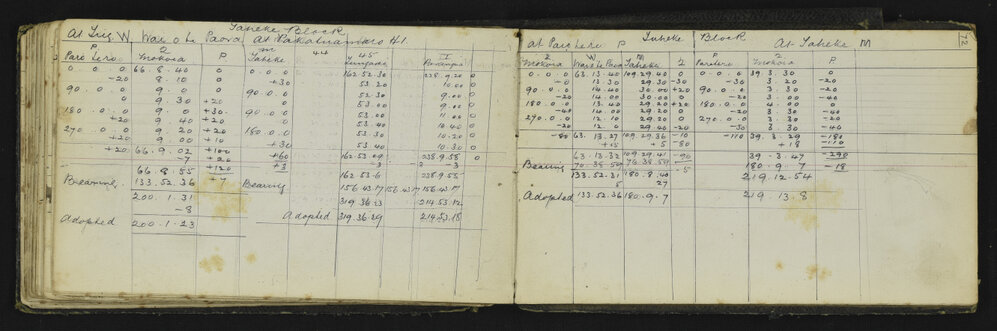 Taheke Block
At Trig W, Wai o te Paoro At Pakaturamiro H.1.
P 2 P m 44 y 45 II
Pare tero mokora Taheke Parengia
0 0 0 66.8.40 0 0.0.0 162.52.30 238.9.20 0
-20 8.10 0 +30 53.20 10.00 0
90.0.0 9.0 0 90.0.0 52.30 9.00 0
0 9.30 +20 0 53.00 9.00 0
180 0.0 9.0 +30 90.0.0 53.00 11.00 0
+20 9.40 +20 0 53.40 10.40 0
270.0.0 9.20 +20 180.0.0 53.30 10.20 0
+20 9.00 +10 +30 53.40 10.30 0
+20 66.9.02 +100 +60 162.53.09 238.9.58 0
-7 +20 +3 3 -3
66.8.55 +120 162.53.6 238.9.55
Bearing 133.52.36 +7 Bearing 156.43.17 156.43.17 156.43.17
200.1.31 319.36.23 214.53.12
-8
Adopted 200.1.23 Adopted 319.36.29 214.53.18
72
At Pare tero P Taheke Block At Taheke M
2 W M 2 P M P
Mokora Wai o te Paoro Taheke Paretero Mokora
0.0.0 63.13.40 109.29.40 0 0.0.0 39.3.30 0
-0 13.30 29.30 -30 -30 3.20 -20
90.0.0 14.00 30.00 +20 90.0.0 3.30 0
-20 14.00 30.00 0 -20 3.00 -40
180.0.0 13.40 29.40 +20 180.0.0 4.00 0
-40 14.00 29.20 0 -30 3.30 -40
270.0.0 12.10 29.20 0 270.0.0 3.30 -20
-20 12.0 29.40 -20 -30 3.30 -40
-80 63.13.27 109.29.36 -10 -110 39.3.29 -180
+15 +5 -80 +18 -110
63.13.32 109.29.41 -90 39.3.47 -290
Bearing 70.38.59 70.38.59 -5 180.9.7 -18
133.52.31 180.8.40 219.12.54
5 27
Adopted 133.52.36 180.9.7 219.13.8